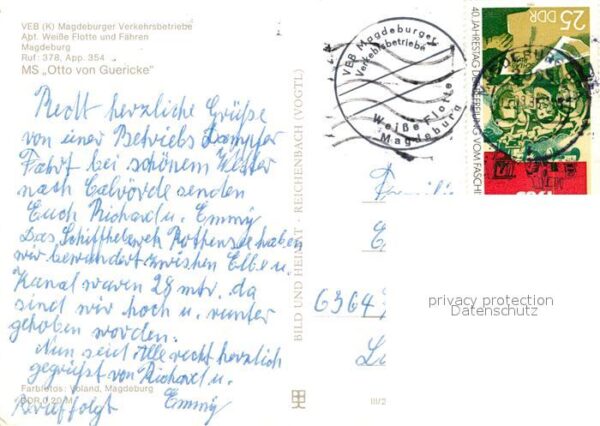 VEB (K) Magdeburger Verkehrsbetriebe
Abt. Weiße Flotte und Fähren
Magdeburg
Ruf: 378, App. 354
MS „Otto von Guericke"
Recht herzliche Grüße
von einer Betriebs Dampfer
Fahrt bei schönem Wetter
nach Calvörde senden
Euch Richard u. Emmy
Das Schiffhebewerk Rothensee haben
wir bewundert zwischen Elbe u.
Kanal waren 28 mtr. da
sind wir hoch u. runter
gehoben worden.
Nun seid Alle recht herzlich
gegrüßt von Richard u.
Brief folgt Emmy
Farbfotos: Voland, Magdeburg
DDR 0,20 M
BILD UND HEIMAT · REICHENBACH (VOGTL)
III/2
VEB Magdeburger
Verkehrsbetriebe
Weiße Flotte
Magdeburg
25 DDR
40. JAHRESTAG DER BEFREIUNG VOM FASCHI
6364
privacy protection
Datenschutz